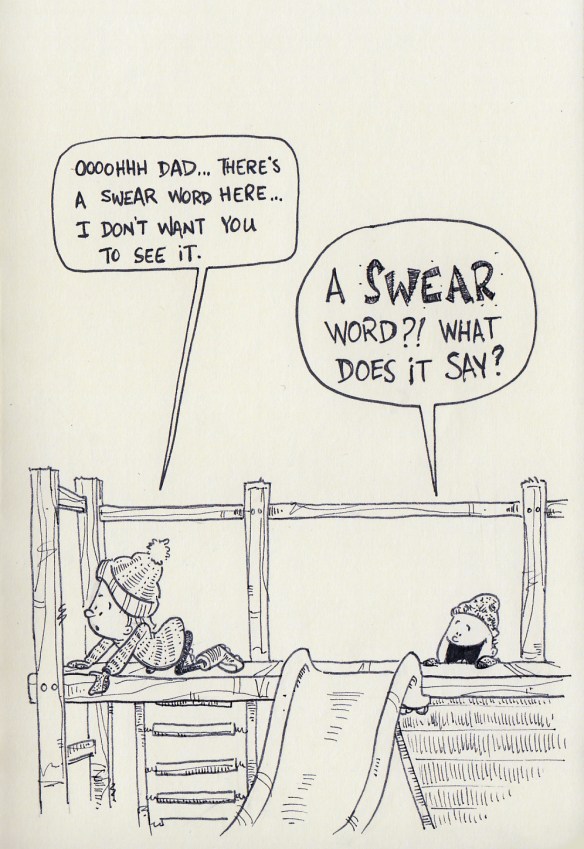 OOOOHHH DAD... THERE'S
A SWEAR WORD HERE...
I DON'T WANT YOU
TO SEE IT.
A SWEAR
WORD?! WHAT
DOES IT SAY?